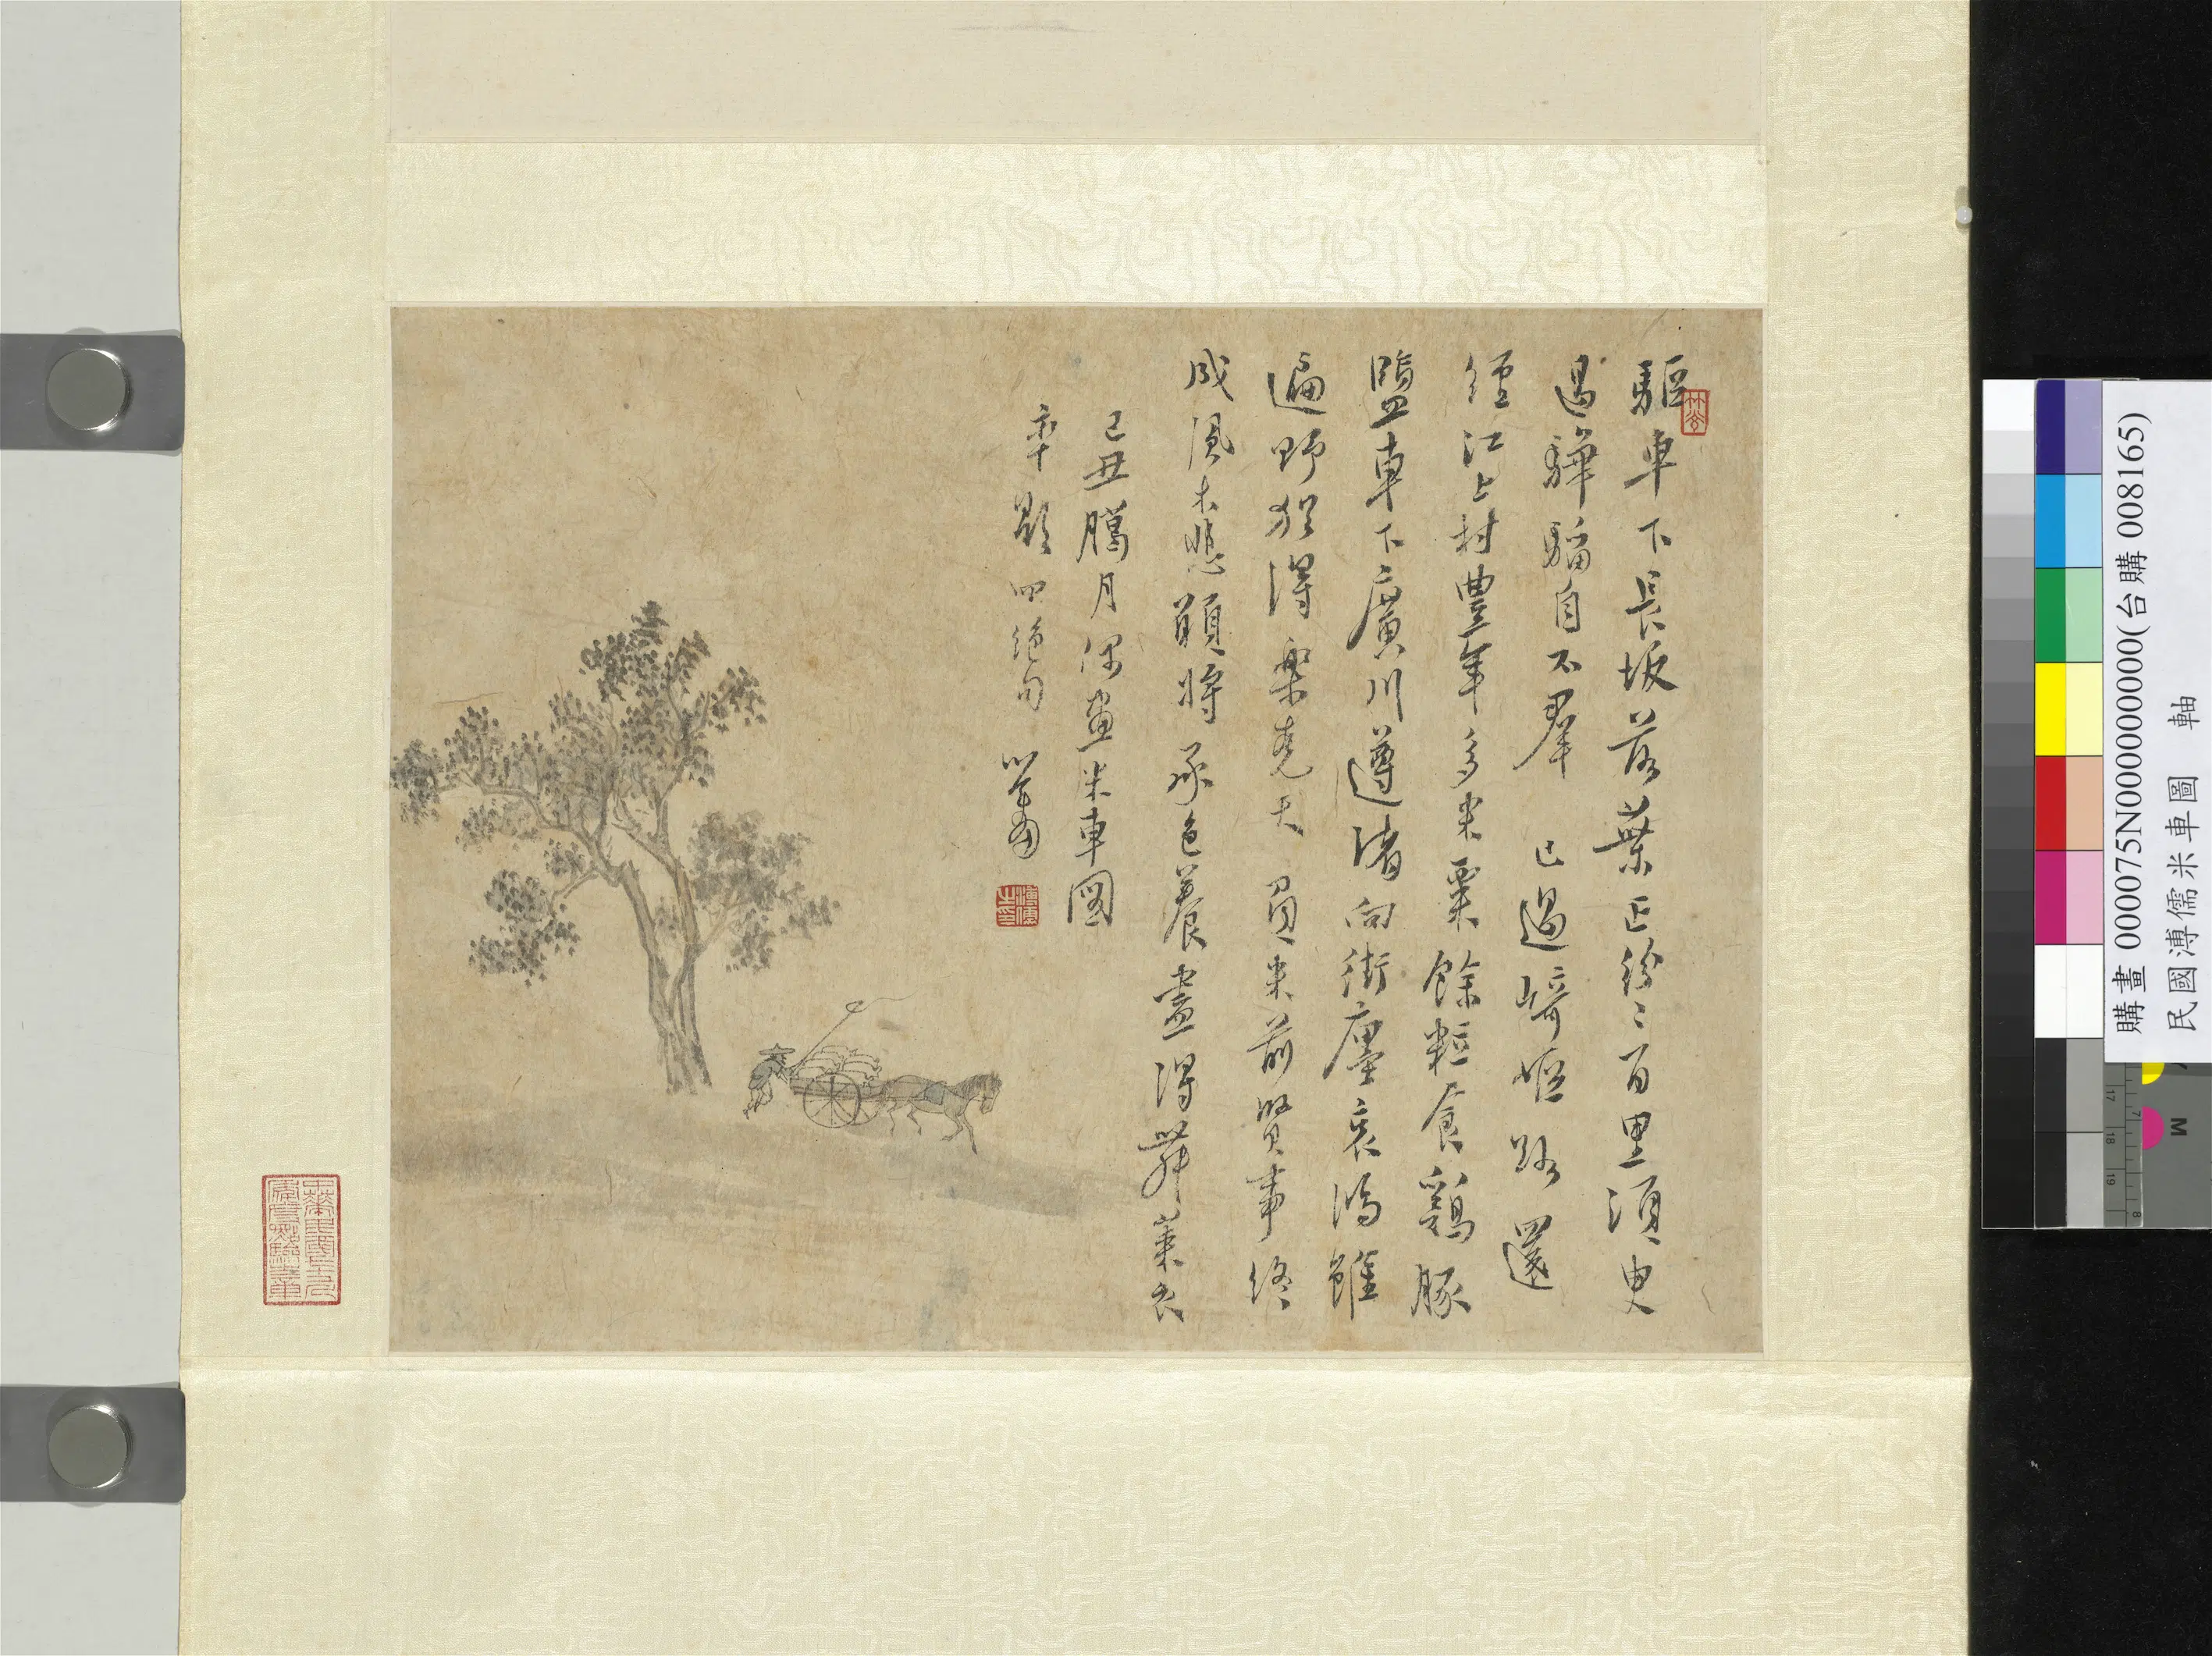 驅車下長坂落葉正紛〻百里須臾
過驊騮自不羣 已過崎嶇路還
經江上村豐年多米粟餘粒食鷄豚
鹽車下廣川遵渚向街廛哀鴻雖
遍野猶得樂堯天 負米前賢事終
成風木悲願將承色養盡得舞萊衣
己丑臘月偶畫米車圖
率題四絕句 心畬
溥儒之印
購畫 000075N000000000(台購 008165)
民國溥儒米車圖 軸
17 18 19
7 8
M